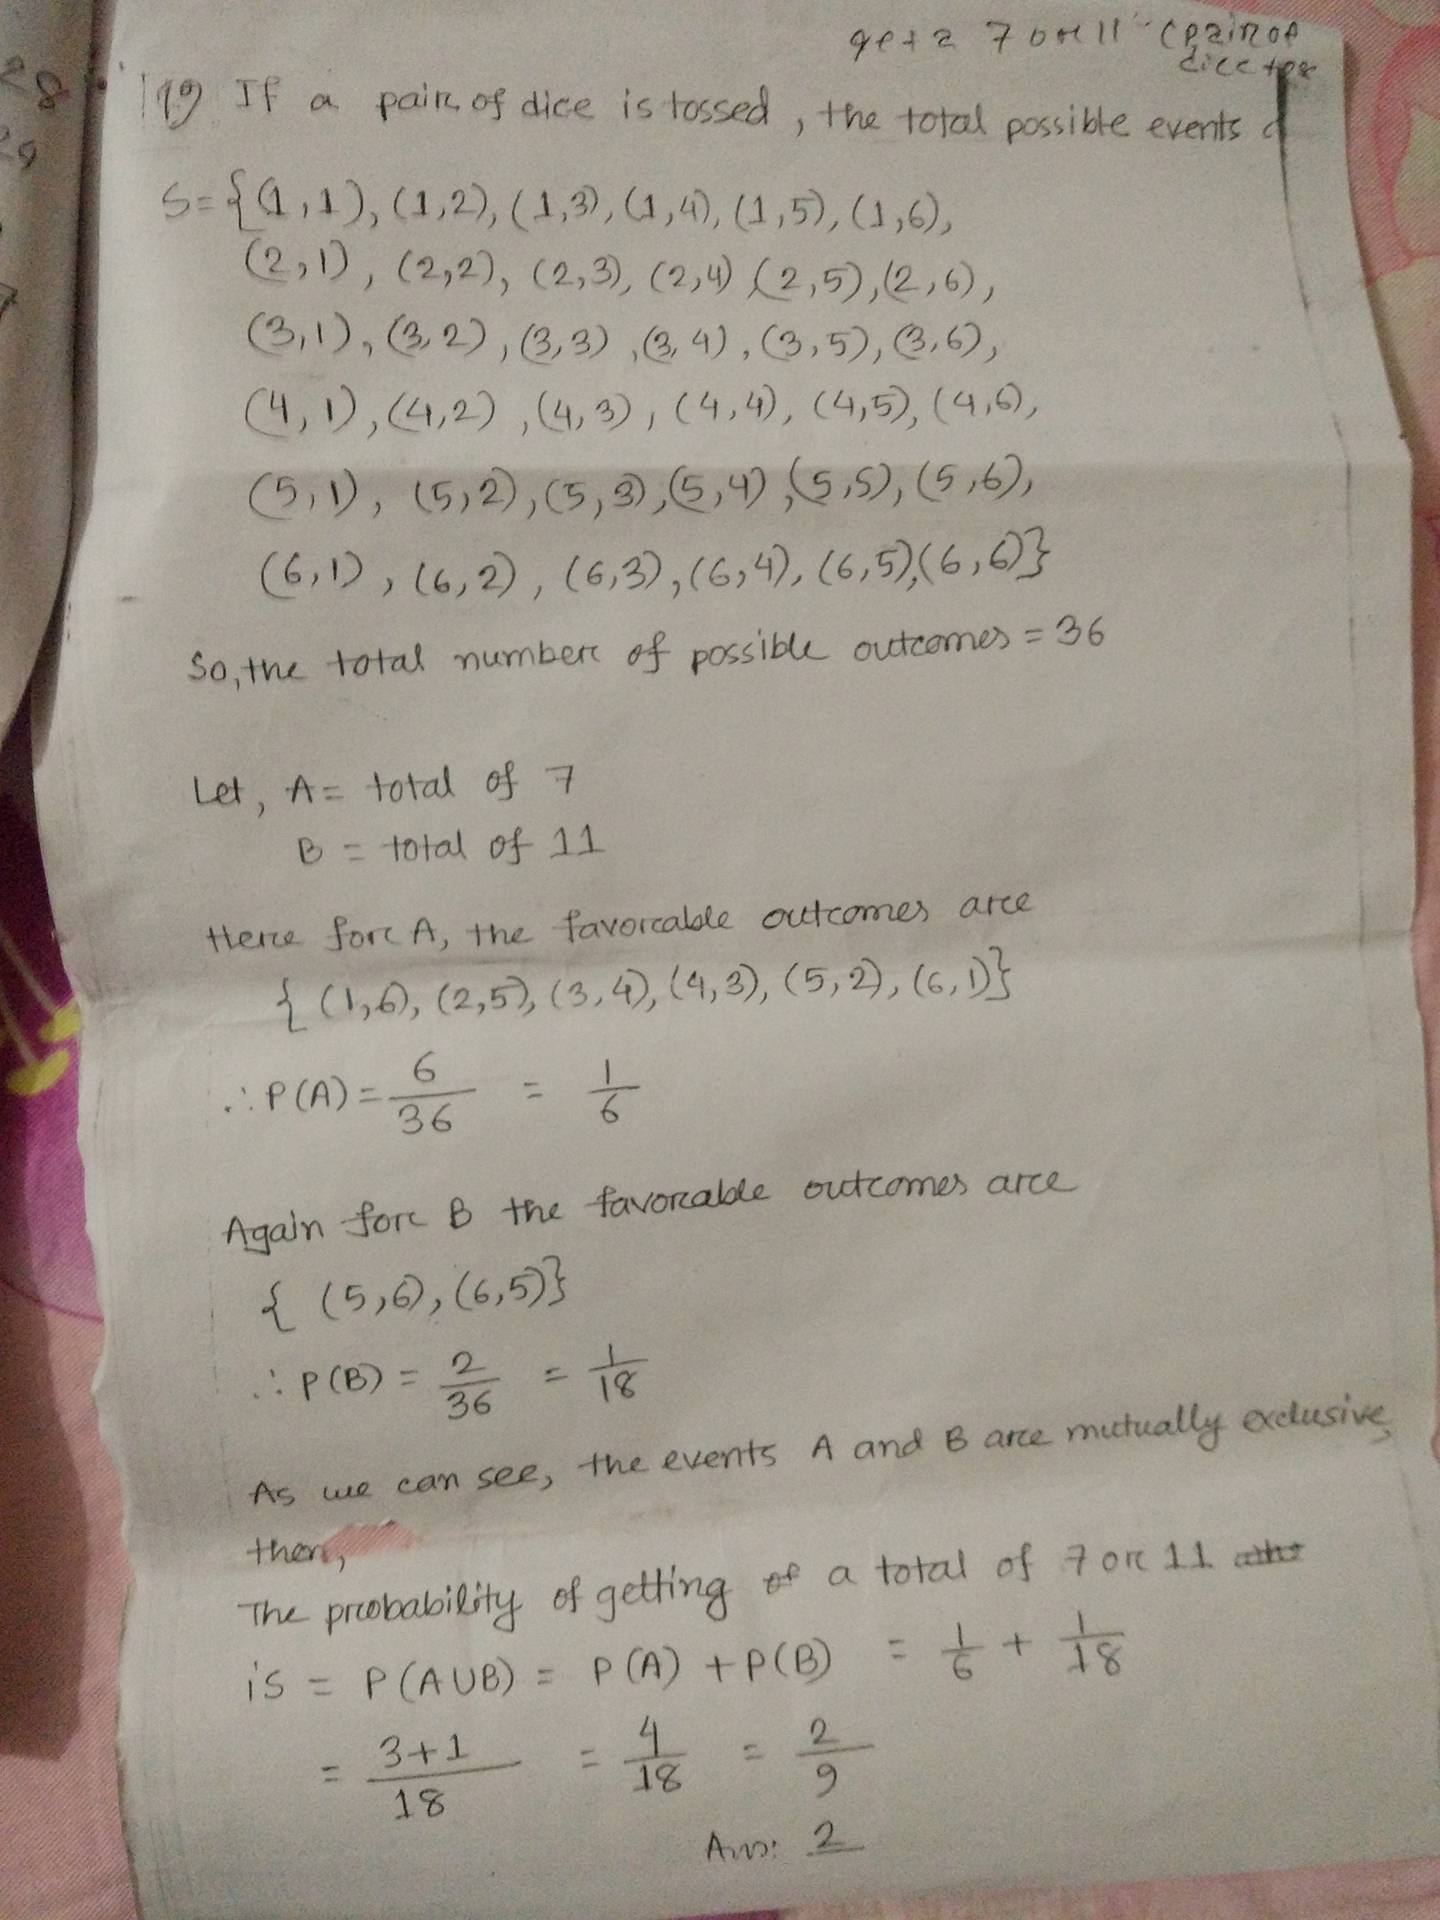 get a 7 or 11 (pair of
dice
19) If a pair of dice is tossed, the total possible events
S = {(1,1), (1,2), (1,3), (1,4), (1,5), (1,6),
(2,1), (2,2), (2,3), (2,4), (2,5), (2,6),
(3,1), (3,2), (3,3), (3,4), (3,5), (3,6),
(4,1), (4,2), (4,3), (4,4), (4,5), (4,6),
(5,1), (5,2), (5,3), (5,4), (5,5), (5,6),
(6,1), (6,2), (6,3), (6,4), (6,5), (6,6)}
So, the total number of possible outcomes = 36
Let, A = total of 7
B = total of 11
Here for A, the favorable outcomes are
{ (1,6), (2,5), (3,4), (4,3), (5,2), (6,1)}
∴ P(A) = 6/36 = 1/6
Again for B the favorable outcomes are
{ (5,6), (6,5)}
∴ P(B) = 2/36 = 1/18
As we can see, the events A and B are mutually exclusive,
then,
The probability of getting of a total of 7 or 11
is = P(A∪B) = P(A) + P(B) = 1/6 + 1/18
= 3+1/18 = 4/18 = 2/9
Ans: 2
28
29
7